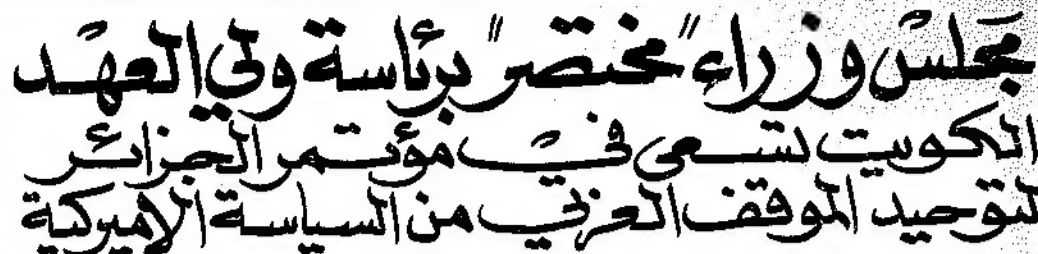 مجلس وزراء "مختصر" برئاسة ولي العهد
الكويت تسعى في مؤتمر الجزائر
لتوحيد الموقف العربي من السياسة الاميركية